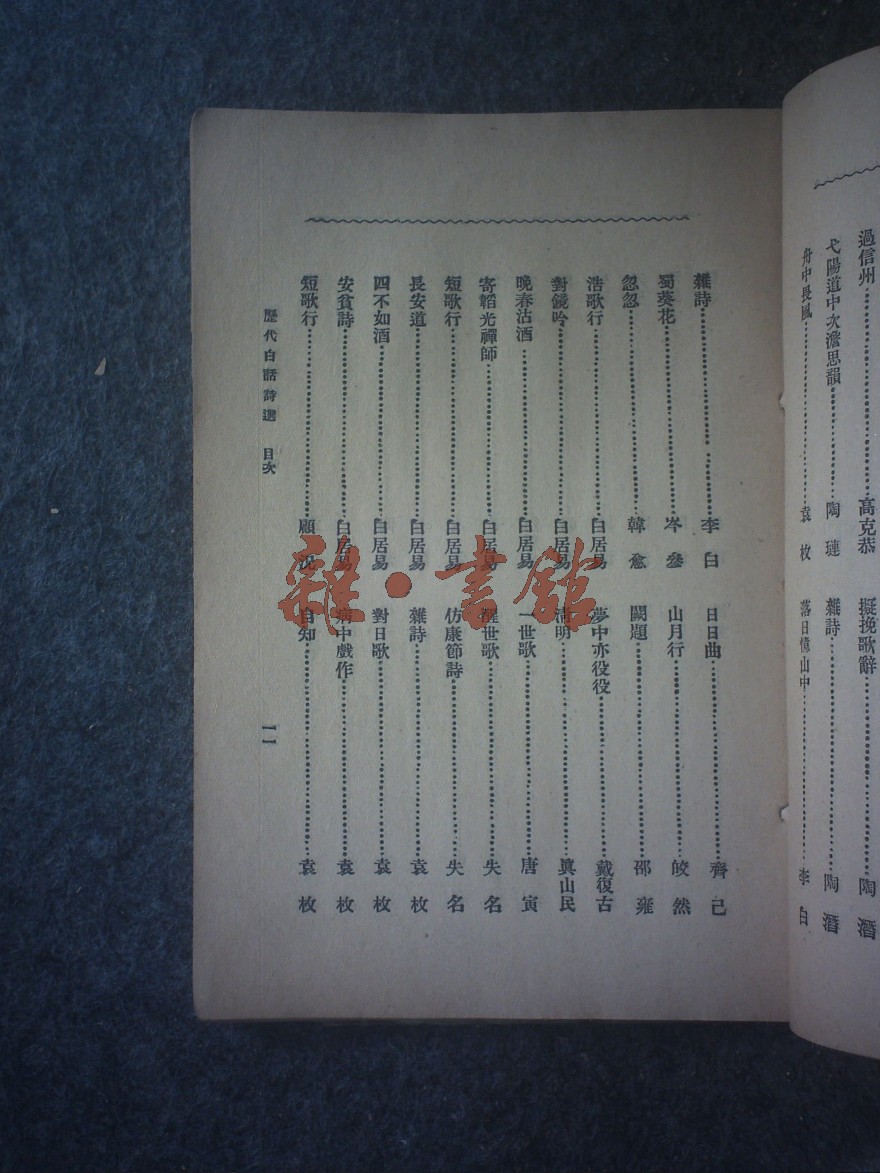 過信州……高克恭
擬挽歌辭……陶潛
弋陽道中次澹思韻……陶璉
雜詩……陶潛
舟中長風……袁枚
落日憶山中……李白
雜詩……李白
日日曲……齊己
蜀葵花……岑參
山月行……皎然
忽忽……韓愈
闕題……邵雍
浩歌行……白居易
夢中亦役役……戴復古
對鏡吟……白居易
清明……眞山民
晚春沽酒……白居易
一世歌……唐寅
寄韜光禪師……白居易
醒世歌……失名
短歌行……白居易
仿康節詩……失名
長安道……白居易
雜詩……袁枚
四不如酒……白居易
對日歌……袁枚
安貧詩……白居易
病中戲作……袁枚
短歌行……顧況
自知……袁枚
歷代白話詩選 目次
一一
雜·書館